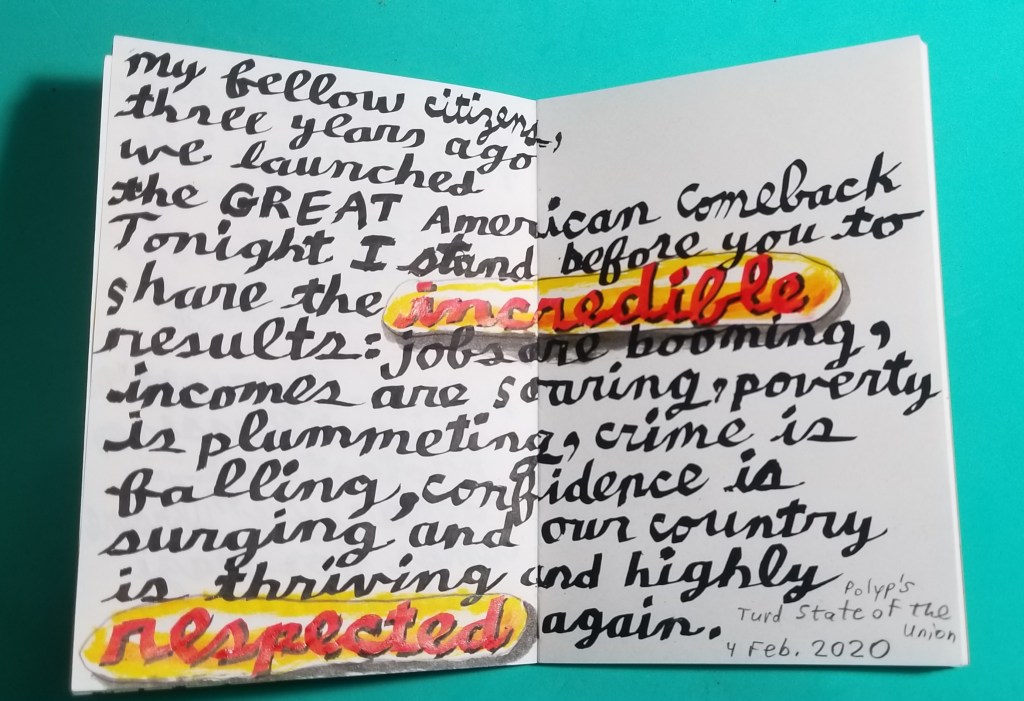 my fellow citizens,
three years ago
we launched
the GREAT American comeback
Tonight I stand before you to
share the incredible
results: jobs are booming,
incomes are soaring, poverty
is plummeting, crime is
falling, confidence is
surging and our country
is thriving and highly
respected again.
Polyp's
Turd State of the
Union
4 Feb. 2020